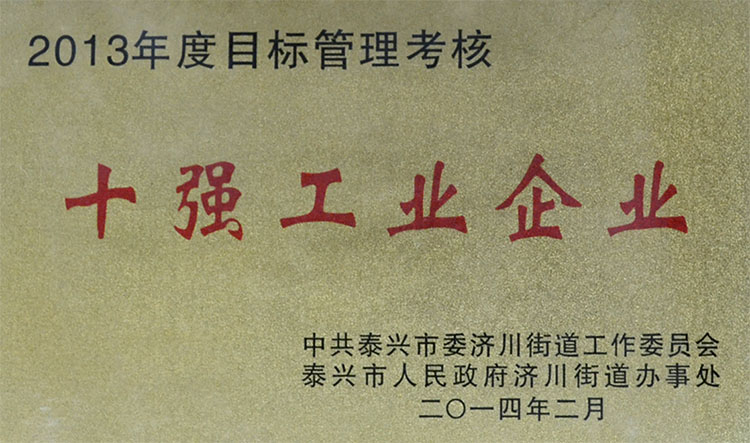 2013年度目标管理考核
十强工业企业
中共泰兴市委济川街道工作委员会
泰兴市人民政府济川街道办事处
二〇一四年二月